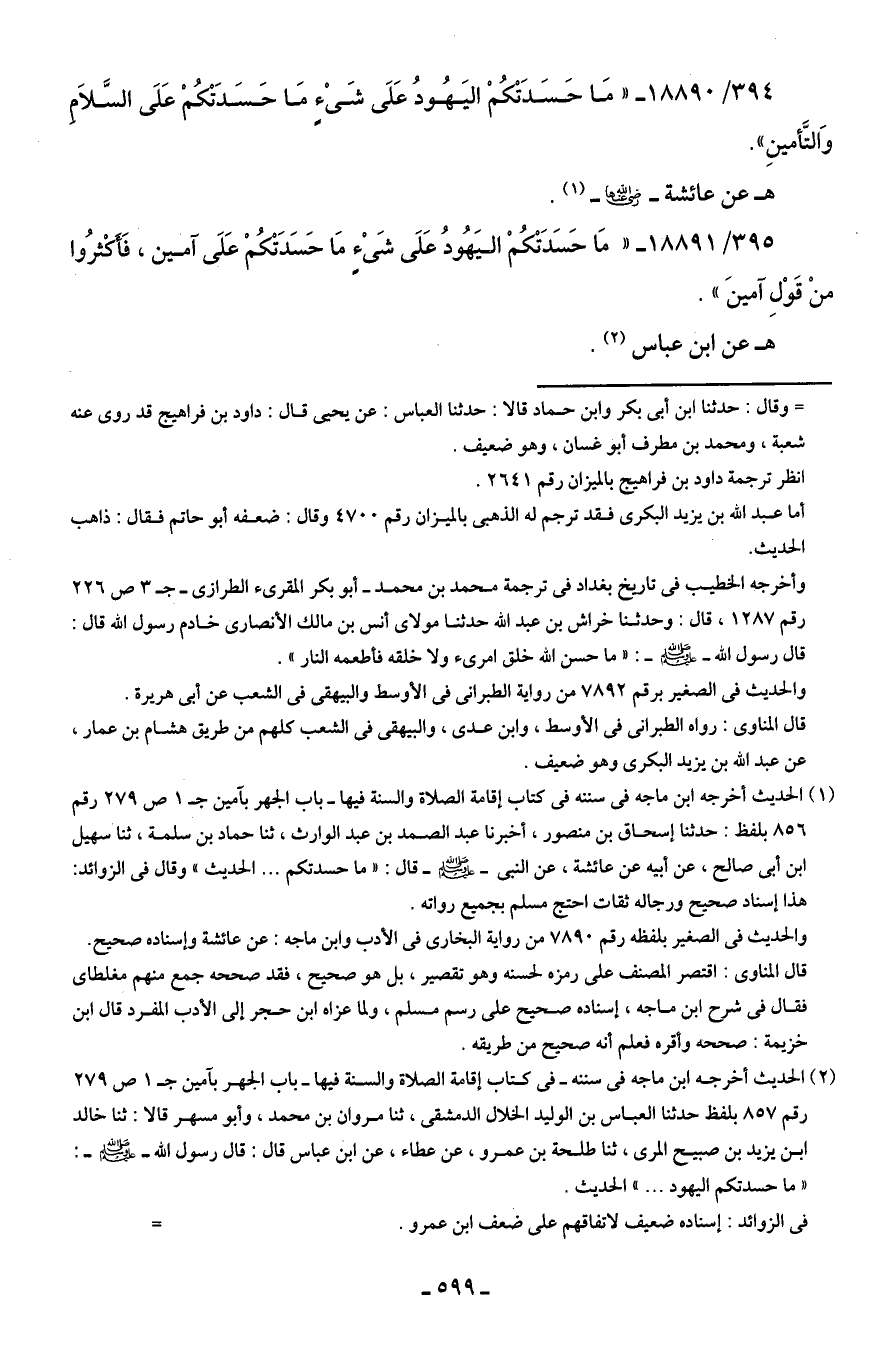 ٣٩٤/ ١٨٨٩٠ـ « مَا حَسَدَتْكُمْ اليَهُودُ عَلَى شَىْءٍ مَا حَسَدَتْكُمْ عَلَى السَّلاَمِ
وَالتَّأمينِ».
هـ عن عائشة ـ رضي الله عنها ـ (١) .
٣٩٥/ ١٨٨٩١ـ « مَا حَسَدَتْكُمْ اليَهُودُ عَلَى شَىْءٍ مَا حَسَدَتْكُمْ عَلَى آمـين ، فَأَكْثرُوا
منْ قَوْلِ آمينَ » .
هـ عن ابن عباس (٢) .
= وقال : حدثنا ابن أبى بكر وابن حماد قالا : حدثنا العباس : عن يحيى قال : داود بن فراهيج قد روى عنه
شعبة ، ومحمد بن مطرف أبو غسان ، وهو ضعيف .
انظر ترجمة داود بن فراهيج بالميزان رقم ٢٦٤١ .
أما عبد الله بن يزيد البكرى فقد ترجم له الذهبى بالميزان رقم ٤٧٠٠ وقال : ضعفه أبو حاتم فقال : ذاهب
الحديث.
وأخرجه الخطيب فى تاريخ بغداد فى ترجمة محمد بن محمد ـ أبو بكر المقرىء الطرازى ـ جـ ٣ ص ٢٢٦
رقم ١٢٨٧ ، قال : وحدثنا خراش بن عبد الله حدثنا مولاى أنس بن مالك الأنصارى خادم رسول الله قال :
قال رسول الله ـ ﷺ ـ : « ما حسن الله خلق امرىء ولا خلقه فأطعمه النار » .
والحديث فى الصغير برقم ٧٨٩٢ من رواية الطبرانى فى الأوسط والبيهقى فى الشعب عن أبى هريرة .
قال المناوى : رواه الطبرانى فى الأوسط ، وابن عدى ، والبيهقى فى الشعب كلهم من طريق هشام بن عمار ،
عن عبد الله بن يزيد البكرى وهو ضعيف .
(١) الحديث أخرجه ابن ماجه فى سننه فى كتاب إقامة الصلاة والسنة فيها ـ باب الجهر بآمين جـ ١ ص ٢٧٩ رقم
٨٥٦ بلفظ : حدثنا إسحاق بن منصور ، أخبرنا عبد الصمد بن عبد الوارث ، ثنا حماد بن سلمة ، ثنا سهيل
ابن أبى صالح ، عن أبيه عن عائشة ، عن النبى ـ ﷺ ـ قال : « ما حسدتكم ... الحديث » وقال فى الزوائد:
هذا إسناد صحيح ورجاله ثقات احتج مسلم بجميع رواته .
والحديث فى الصغير بلفظه رقم ٧٨٩٠ من رواية البخارى فى الأدب وابن ماجه : عن عائشة وإسناده صحيح.
قال المناوى : اقتصر المصنف على رمزه لحسنه وهو تقصير ، بل هو صحيح ، فقد صححه جمع منهم مغلطاى
فقال فى شرح ابن ماجه ، إسناده صحيح على رسم مسلم ، ولما عزاه ابن حجر إلى الأدب المفرد قال ابن
خزيمة : صححه وأقره فعلم أنه صحيح من طريقه .
(٢) الحديث أخرجه ابن ماجه فى سننه ـ فى كتاب إقامة الصلاة والسنة فيها ـ باب الجهر بآمين جـ ١ ص ٢٧٩
رقم ٨٥٧ بلفظ حدثنا العباس بن الوليد الخلال الدمشقى ، ثنا مروان بن محمد ، وأبو مسهر قالا : ثنا خالد
ابن يزيد بن صبيح المرى ، ثنا طلحة بن عمرو ، عن عطاء ، عن ابن عباس قال : قال رسول الله ـ ﷺ ـ :
« ما حسدتكم اليهود ... » الحديث .
فى الزوائد : إسناده ضعيف لاتفاقهم على ضعف ابن عمرو . =
ـ ٥٩٩ ـ